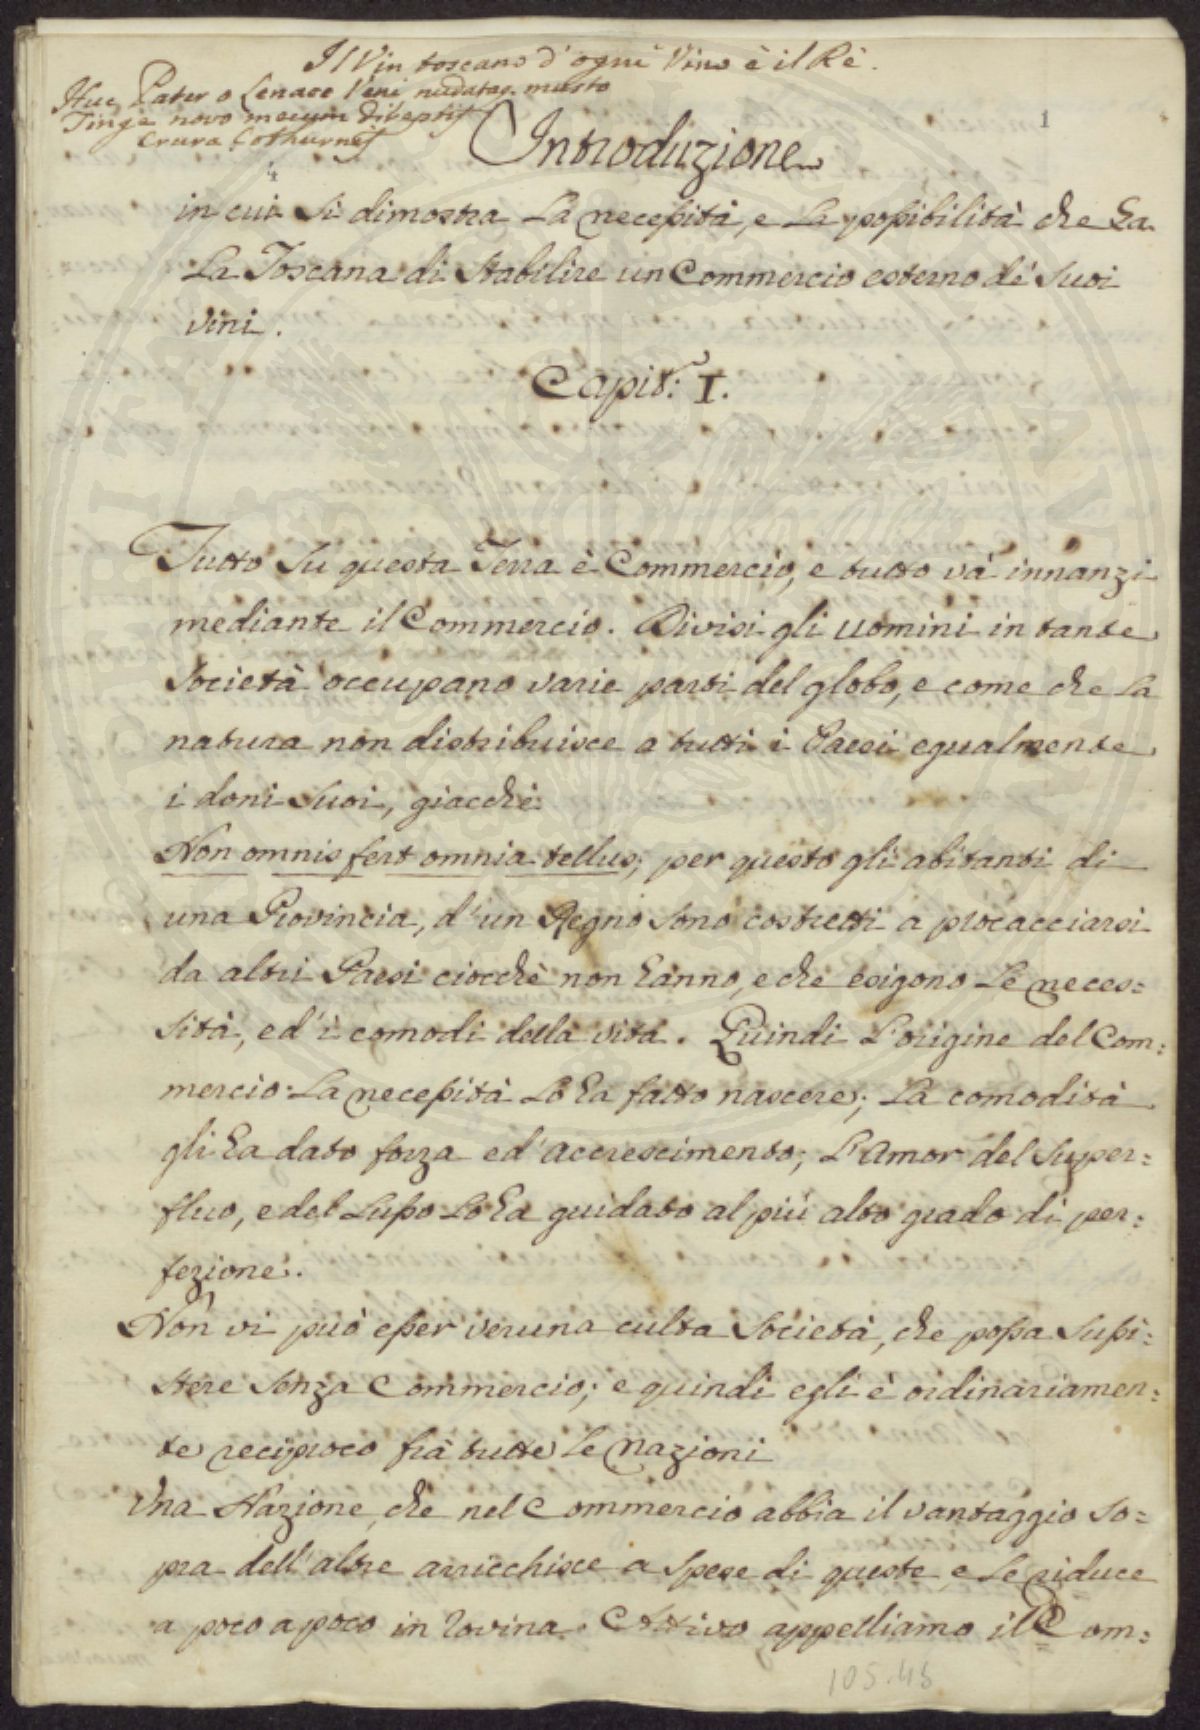 Il Vin toscano d'ogni Vino è il Rè.
Huc, Pater o Lenaee Veni nudataq. musto
Tinge novo mecum dileptis
Crura Cothurnis
1
Introduzione
in cui si dimostra la necessità, e la possibilità che ha
La Toscana di Stabilire un Commercio esterno de' suoi
vini.
Capit: I.
Tutto su questa Terra è Commercio, e tutto và innanzi
mediante il Commercio. Divisi gli uomini in tante
società occupano varie parti del globo, e come che la
natura non distribuisce a tutti i Paesi egualmente
i doni suoi, giacchè
Non omnis fert omnia tellus; per questo gli abitanti di
una Provincia, d'un Regno sono costretti a procacciarsi
da altri Paesi ciocchè non hanno, e che esigono le neces=
sità, ed' i comodi della vita. Quindi l'origine del Com=
mercio. La necessità lo ha fatto nascere; la comodità
gli ha dato forza ed' accrescimento; L'Amor del super=
fluo, e del Lusso lo ha guidato al più alto grado di per=
fezione.
Non vi può esser veruna culta Società, che possa sussi=
stere senza Commercio; e quindi egli è ordinariamen=
te reciproco frà tutte le Nazioni
Una Nazione che nel Commercio abbia il vantaggio so=
pra dell'altre arricchisce a spese di queste e le riduce
a poco a poco in rovina. Attivo appelliamo il Com=
105.45